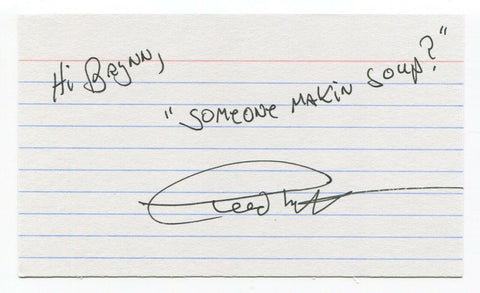 Hi BRYNN,
"SOMEONE MAKiN SOUP?"
Creed